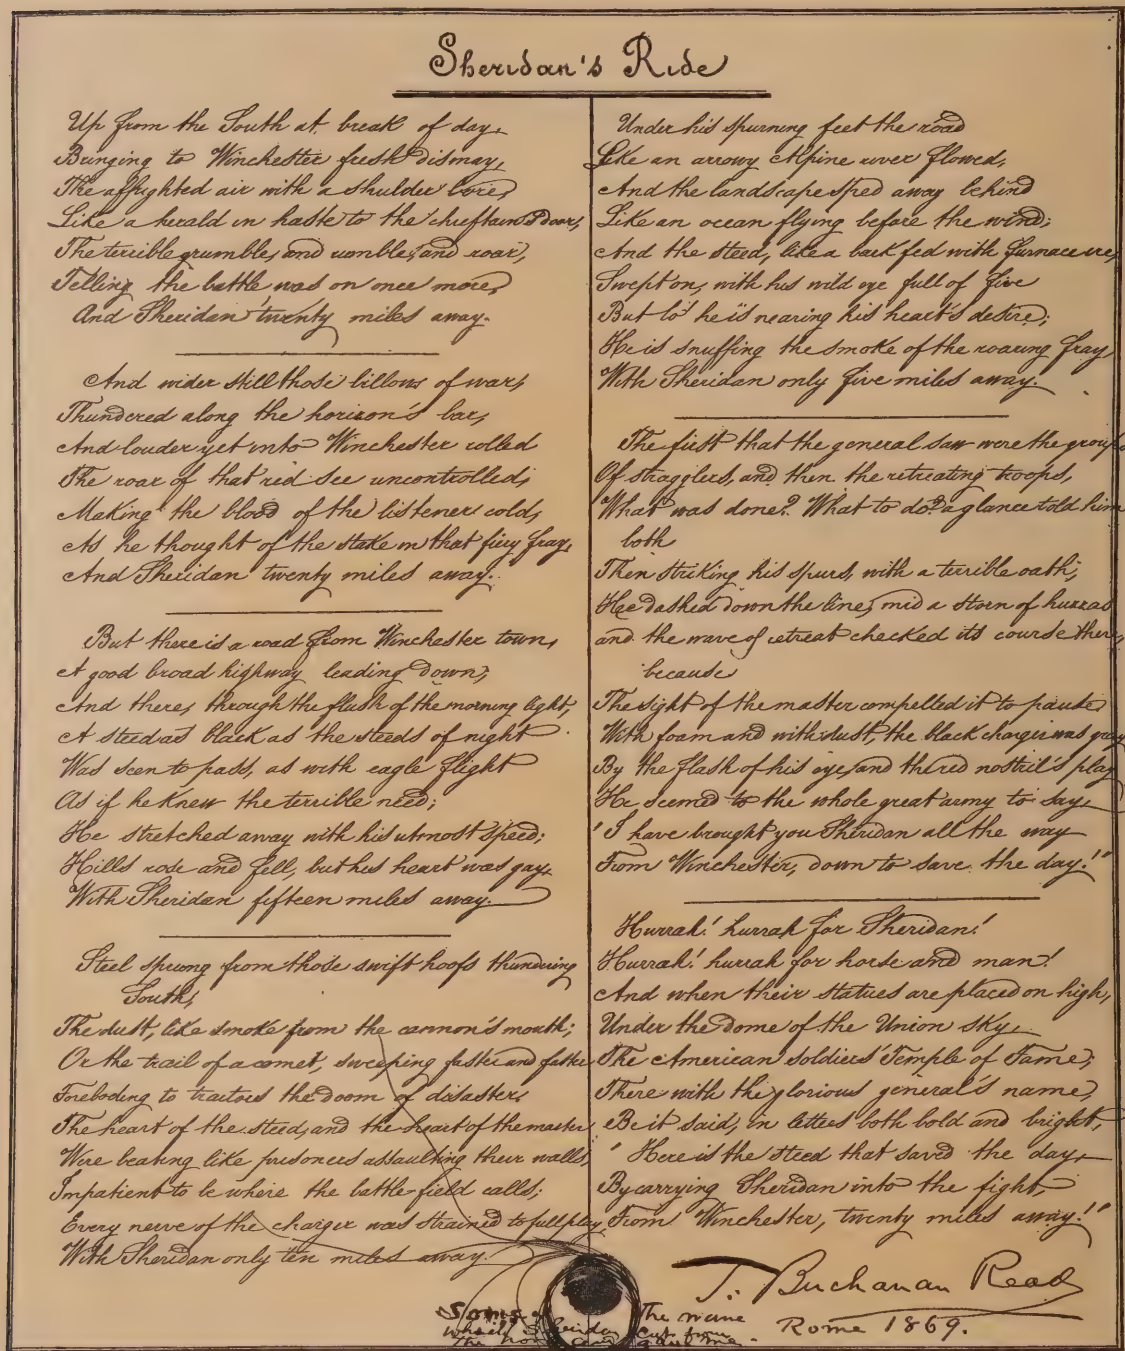 Sheridan's Ride
Up from the South at break of day,
Bringing to Winchester fresh dismay,
The affrighted air with a shulder bore,
Like a herald in haste to the chieftain's door,
The terrible grumble, and rumble, and roar,
Telling the battle was on once more,
And Sheridan twenty miles away.
And wider still those billows of war,
Thundered along the horizon's bar,
And louder yet into Winchester rolled
The roar of that red see uncontrolled,
Making the blood of the listener cold,
As he thought of the stake in that firy fray,
And Sheridan twenty miles away.
But there is a road from Winchester town,
A good broad highway leading down;
And there, through the flush of the morning light,
A steed as black as the steeds of night
Was seen to pass, as with eagle flight
As if he knew the terrible need;
He stretched away with his utmost speed;
Hills rose and fell, but his heart was gay,
With Sheridan fifteen miles away.
Steel sprung from those swift hoofs thundering
South,
The dust, like smoke from the cannon's mouth;
Or the trail of a comet, sweeping faster and faster
Foreboding to traitors the doom of disaster,
The heart of the steed, and the heart of the master
Were beating like prisoners assaulting their walls,
Impatient to be where the battle field calls;
Every nerve of the charger was strained to full play
With Sheridan only ten miles away.
Under his spurning feet the road
Like an arrowy Alpine river flowed,
And the landscape sped away behind
Like an ocean flying before the wind;
And the steed, like a bark fed with furnace ire,
Swept on, with his wild eye full of fire
But lo' he is nearing his heart's desire;
He is snuffing the smoke of the roaring fray
With Sheridan only five miles away.
The first that the general saw were the groups
Of stragglers, and then the retreating troops,
What was done? What to do? a glance told him
both
Then striking his spurs, with a terrible oath,
He dashed down the line, mid a storn of huzzas
and the wave of retreat checked its course there,
because
The sight of the master compelled it to pause
With foam and with dust, the black charger was gray
By the flash of his eye, and the red nostril's play
He seemed to the whole great army to say,
"I have brought you Sheridan all the way
From Winchester, down to save the day!"
Hurrah! hurrah for Sheridan!
Hurrah! hurrah for horse and man!
And when their statues are placed on high,
Under the dome of the Union sky,
The American soldiers' Temple of Fame;
There with the glorious general's name,
Be it said, in letters both bold and bright,
"Here is the steed that saved the day,
By carrying Sheridan into the fight,
From Winchester, twenty miles away!"
T. Buchanan Read
Rome 1869.
Some of The mane
which Sheridan cut from
the horse and me.